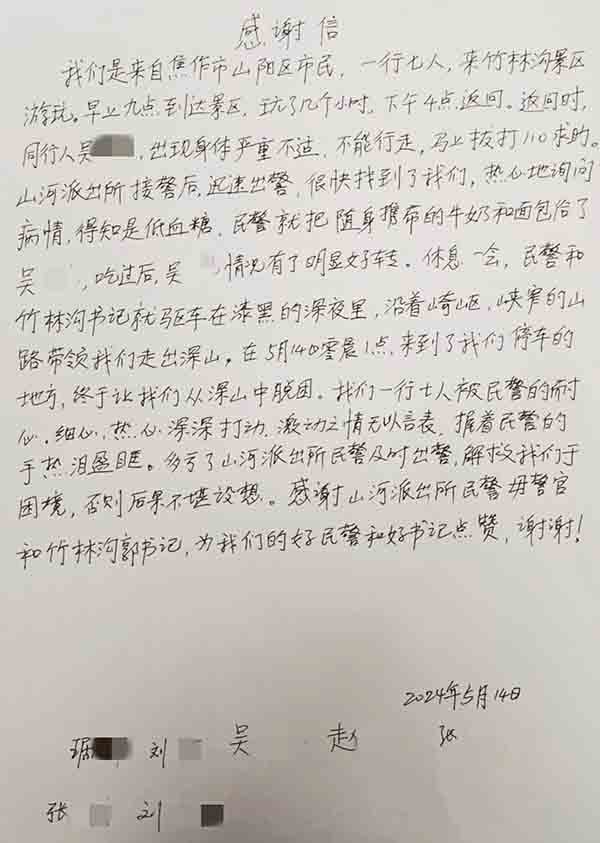 感谢信
我们是来自焦作市山阳区市民，一行七人，来竹林沟景区
游玩。早上九点到达景区，玩了几个小时，下午4点返回。返回时，
同行人吴，出现身体严重不适，不能行走，马上拔打110求助。
山河派出所接警后，迅速出警，很快找到了我们，热心地询问
病情，得知是低血糖，民警就把随身携带的牛奶和面包给了
吴，吃过后，吴，情况有了明显好转。休息一会，民警和
竹林沟书记就驱车在漆黑的深夜里，沿着崎岖，峡窄的山
路带领我们走出深山。在5月14日零晨1点，来到了我们停车的
地方，终于让我们从深山中脱困。我们一行七人被民警的耐
心，细心，热心深深打动，激动之情无以言表，握着民警的
手热泪盈眶。多亏了山河派出所民警及时出警，解救我们于
困境，否则后果不堪设想。感谢山河派出所民警毋警官
和竹林沟郭书记，为我们的好民警和好书记点赞，谢谢！
2024年5月14日
琚 刘 吴 赵 张
张 刘